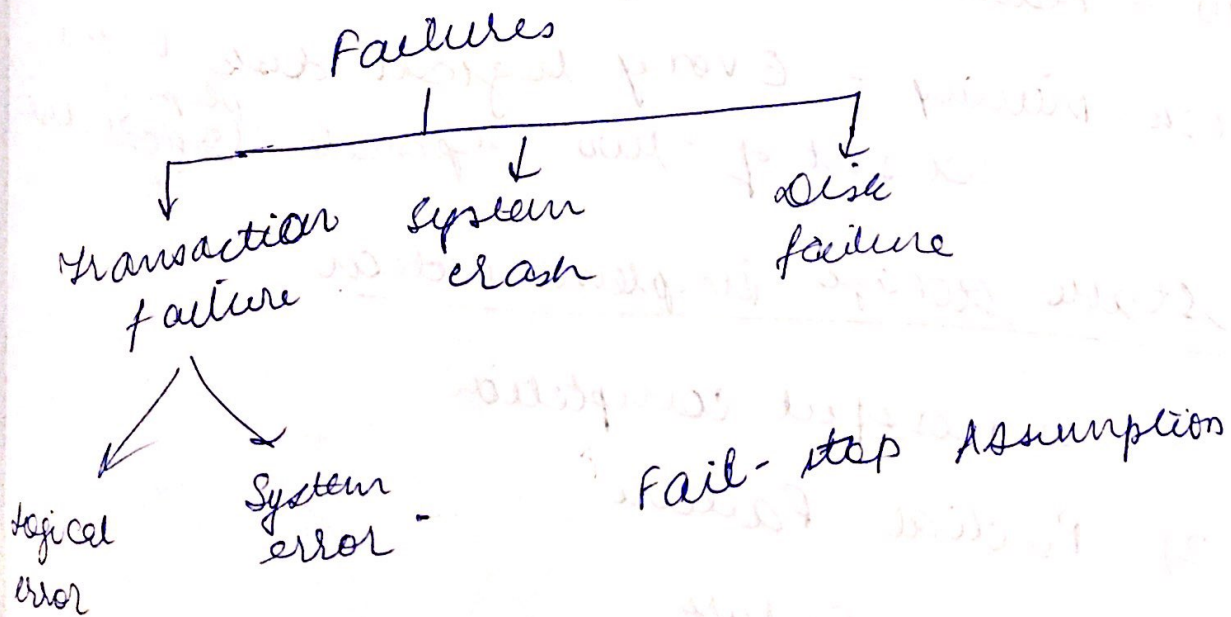 Failures
Transaction
failure
System
crash
Disk
failure
Logical
error
System
error
Fail-stop Assumption